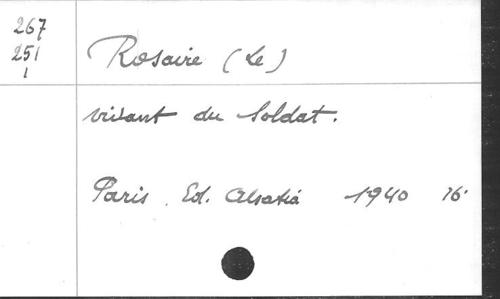 267
251
1
Rosaire (Le)
vivant du Soldat.
Paris. Ed. Alsatia 1940 16°